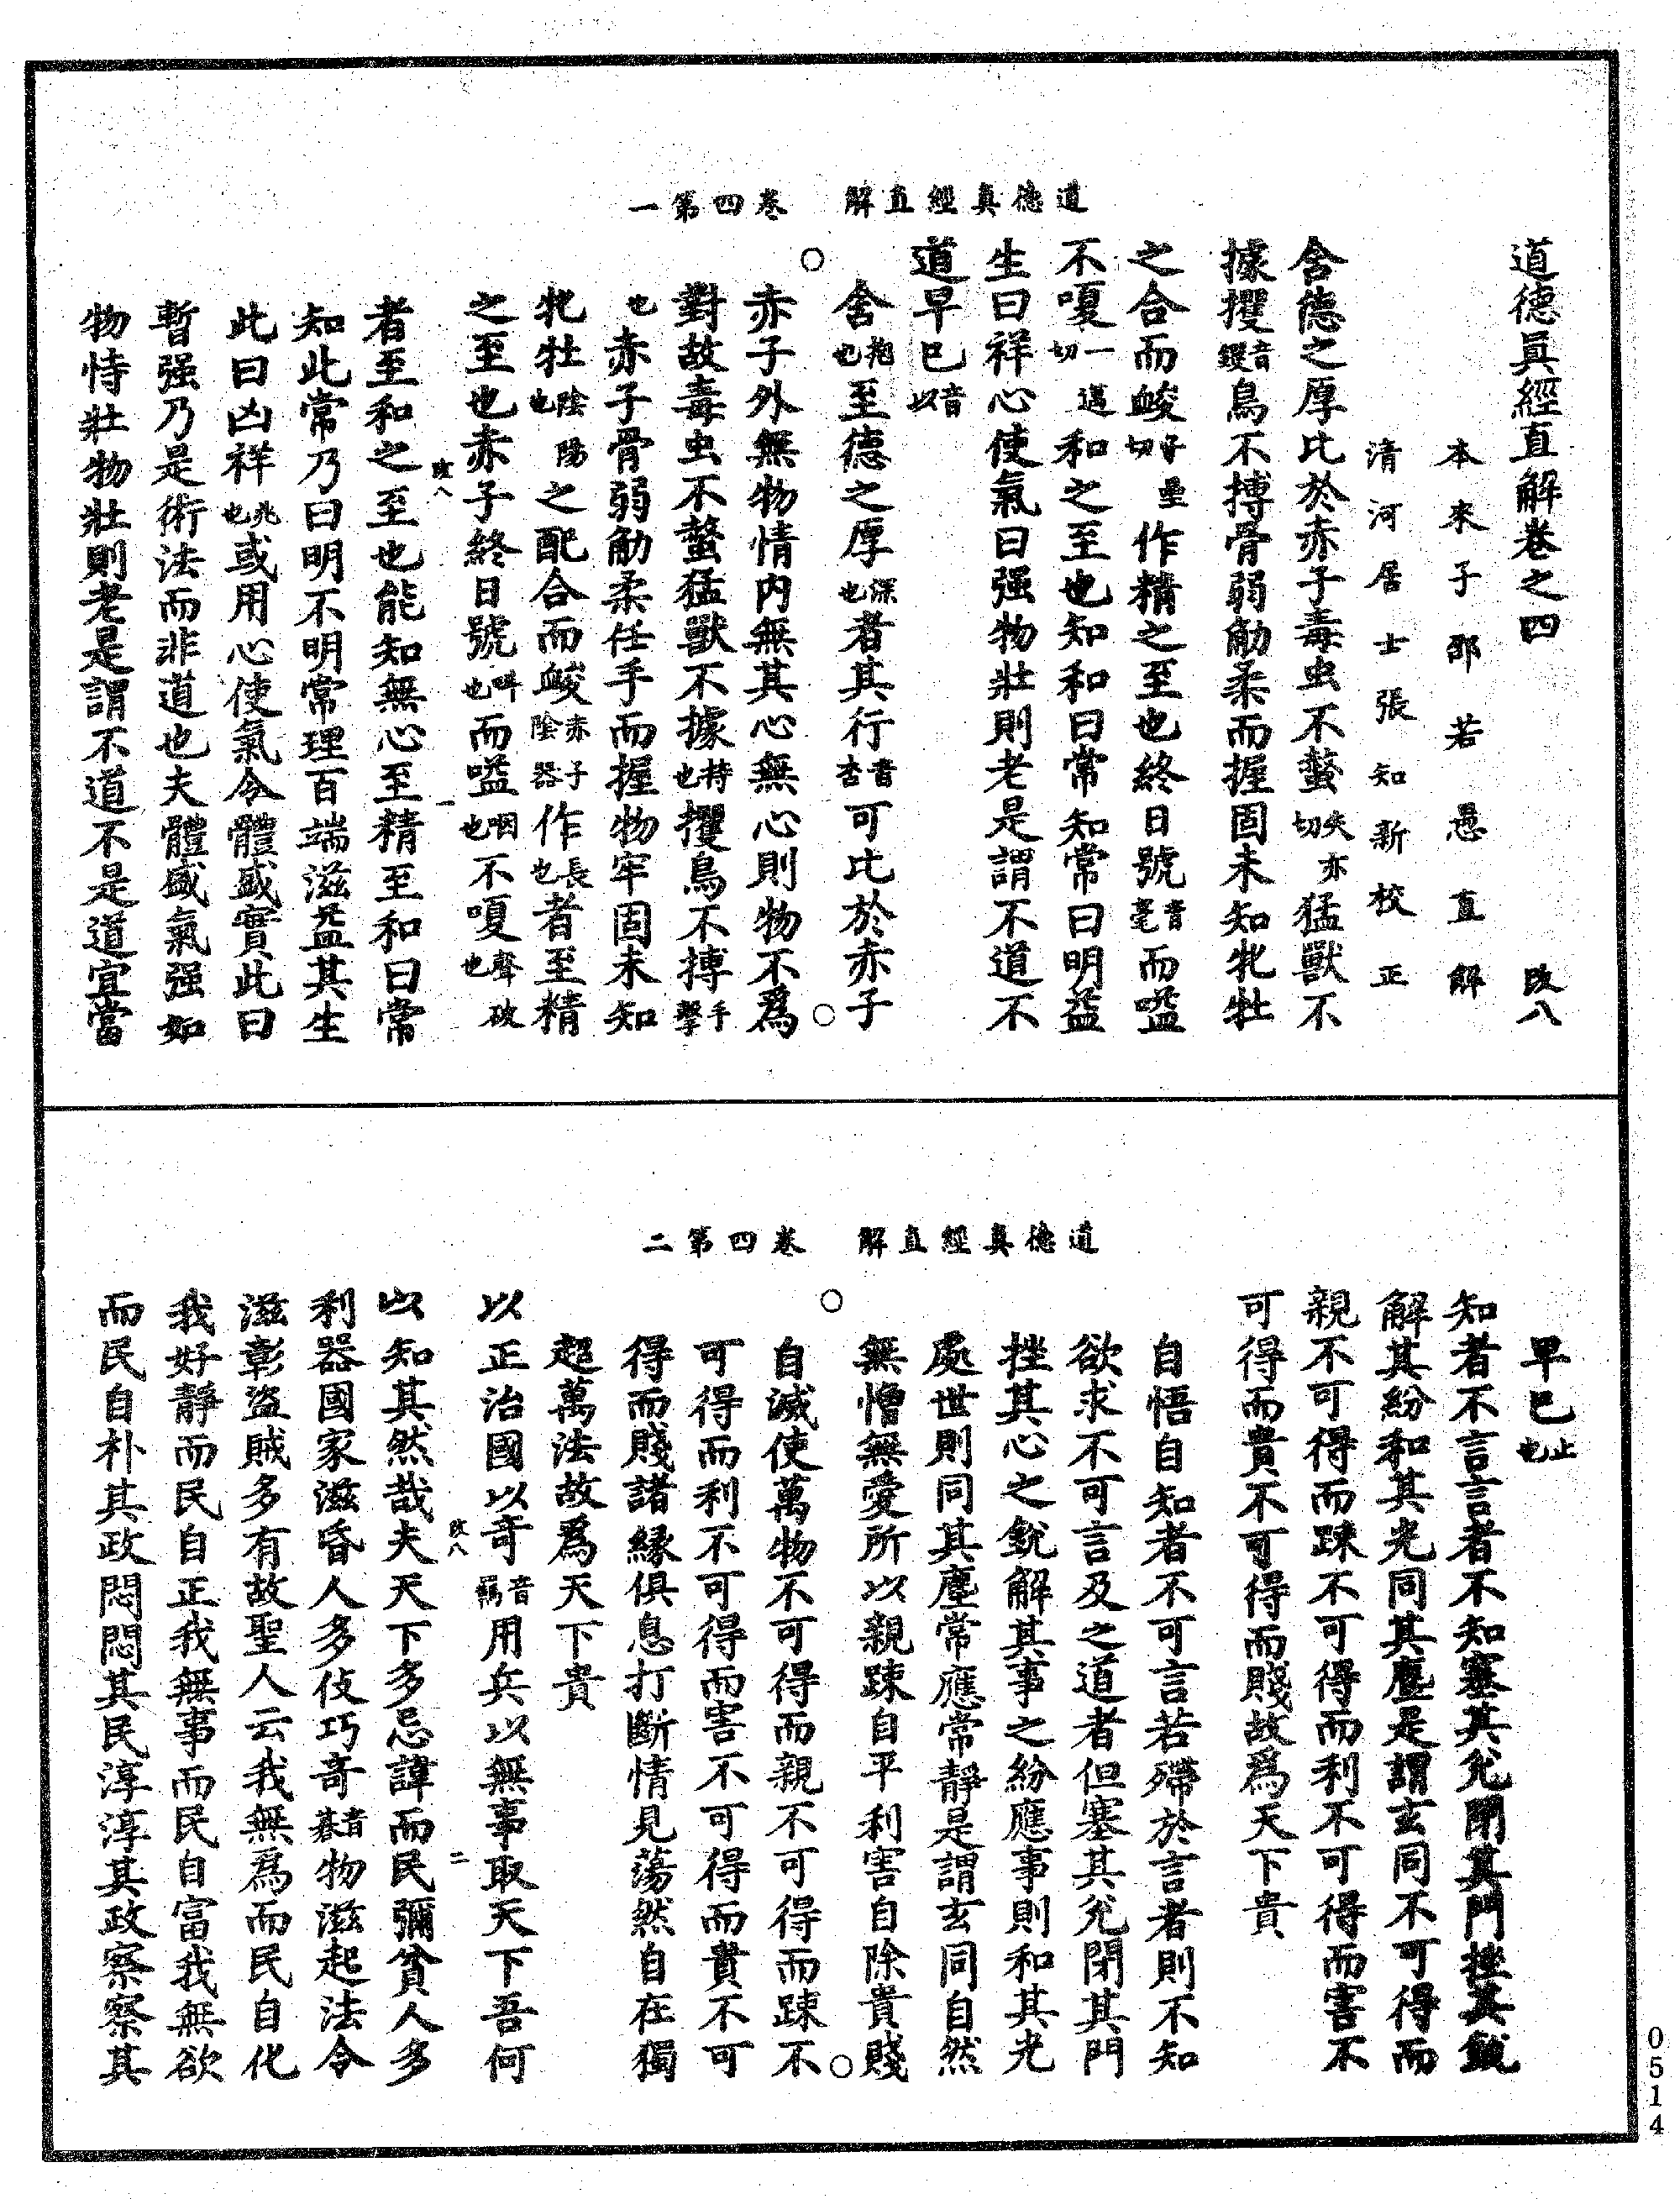 道德眞經直解卷之四　改八
本來子邵若愚直解
清河居士張知新校正
含德之厚比於赤子毒虫不螫失亦切猛獸不
據攫音钁鳥不搏骨弱觔柔而握固未知牝牡
之合而䘒子壘切作精之至也終日號音毫而嗌
不嗄一邁切和之至也知和曰常知常曰明益
生曰祥心使氣曰强物壯則老是謂不道不
道早已音以
含抱也至德之厚深也者其行音杏可比於赤子
赤子外無物情内無其心無心則物不爲
對故毒虫不螫猛獸不據持也攫鳥不搏手擊
也赤子骨弱觔柔任手而握物牢固未知
牝牡陰陽也之配合而䘒赤子陰器作長也者至精
之至也赤子終日號呌也而嗌咽也不嗄聲破也
者至和之至也能知無心至精至和曰常
知此常乃曰明不明常理百端滋益其生
此曰凶祥兆也或用心使氣令體盛實此曰
暫强乃是術法而非道也夫體盛氣强如
物恃壯物壯則老是謂不道不是道宜當
道德眞經直解　卷四第一
改八　一
早已止也
知者不言言者不知塞其兊閉其門挫其銳
解其紛和其光同其塵是謂玄同不可得而
親不可得而踈不可得而利不可得而害不
可得而貴不可得而賤故爲天下貴
自悟自知者不可言若殢於言者則不知
欲求不可言及之道者但塞其兊閉其門
挫其心之銳解其事之紛應事則和其光
處世則同其塵常應常靜是謂玄同自然
無憎無愛所以親踈自平利害自除貴賤
自滅使萬物不可得而親不可得而踈不
可得而利不可得而害不可得而貴不可
得而賤諸緣俱息打斷情見蕩然自在獨
超萬法故爲天下貴
以正治國以奇音羇用兵以無事取天下吾何
以知其然哉夫天下多忌諱而民彌貧人多
利器國家滋昏人多伎巧奇音碁物滋起法令
滋彰盜賊多有故聖人云我無爲而民自化
我好靜而民自正我無事而民自富我無欲
而民自朴其政悶悶其民淳淳其政察察其
道德眞經直解　卷四第二
改八　二
0514